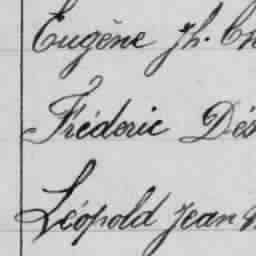 Eugène Jh. Ch
Fréderic Dés
Léopold Jean